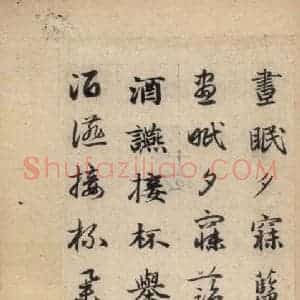 晝眠夕寐藍
晝眠夕寐藍
酒讌接杯舉
酒讌接杯舉
Shufaziliao.com